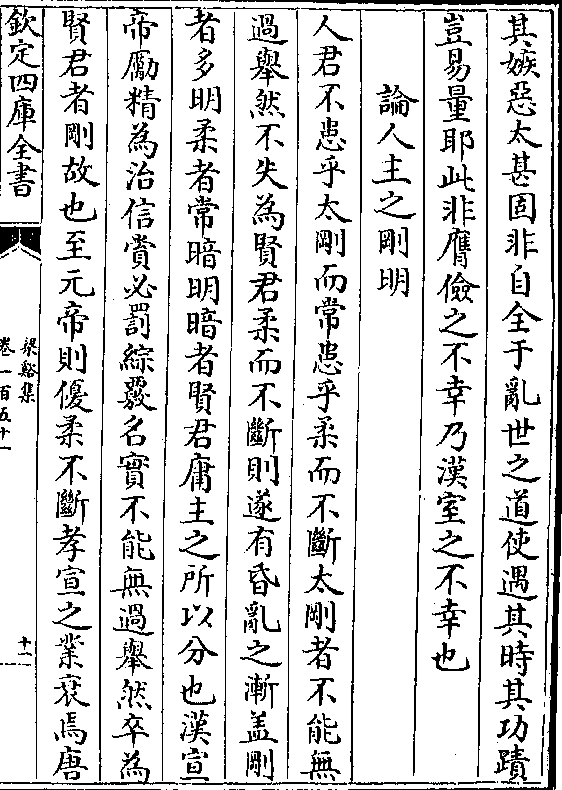 其嫉惡太甚固非自全于亂世之道使遇其時其功蹟
豈易量耶此非膺儉之不幸乃漢室之不幸也
論人主之剛明
人君不患乎太剛而常患乎柔而不斷太剛者不能無
過舉然不失為賢君柔而不斷則遂有昏亂之漸盖剛
者多明柔者常暗明暗者賢君庸主之所以分也漢宣
帝勵精為治信賞必罰綜覈名實不能無過舉然卒為
賢君者剛故也至元帝則優柔不斷孝宣之業衰焉唐
欽定四庫全書
梁谿集
卷一百五十一
十一